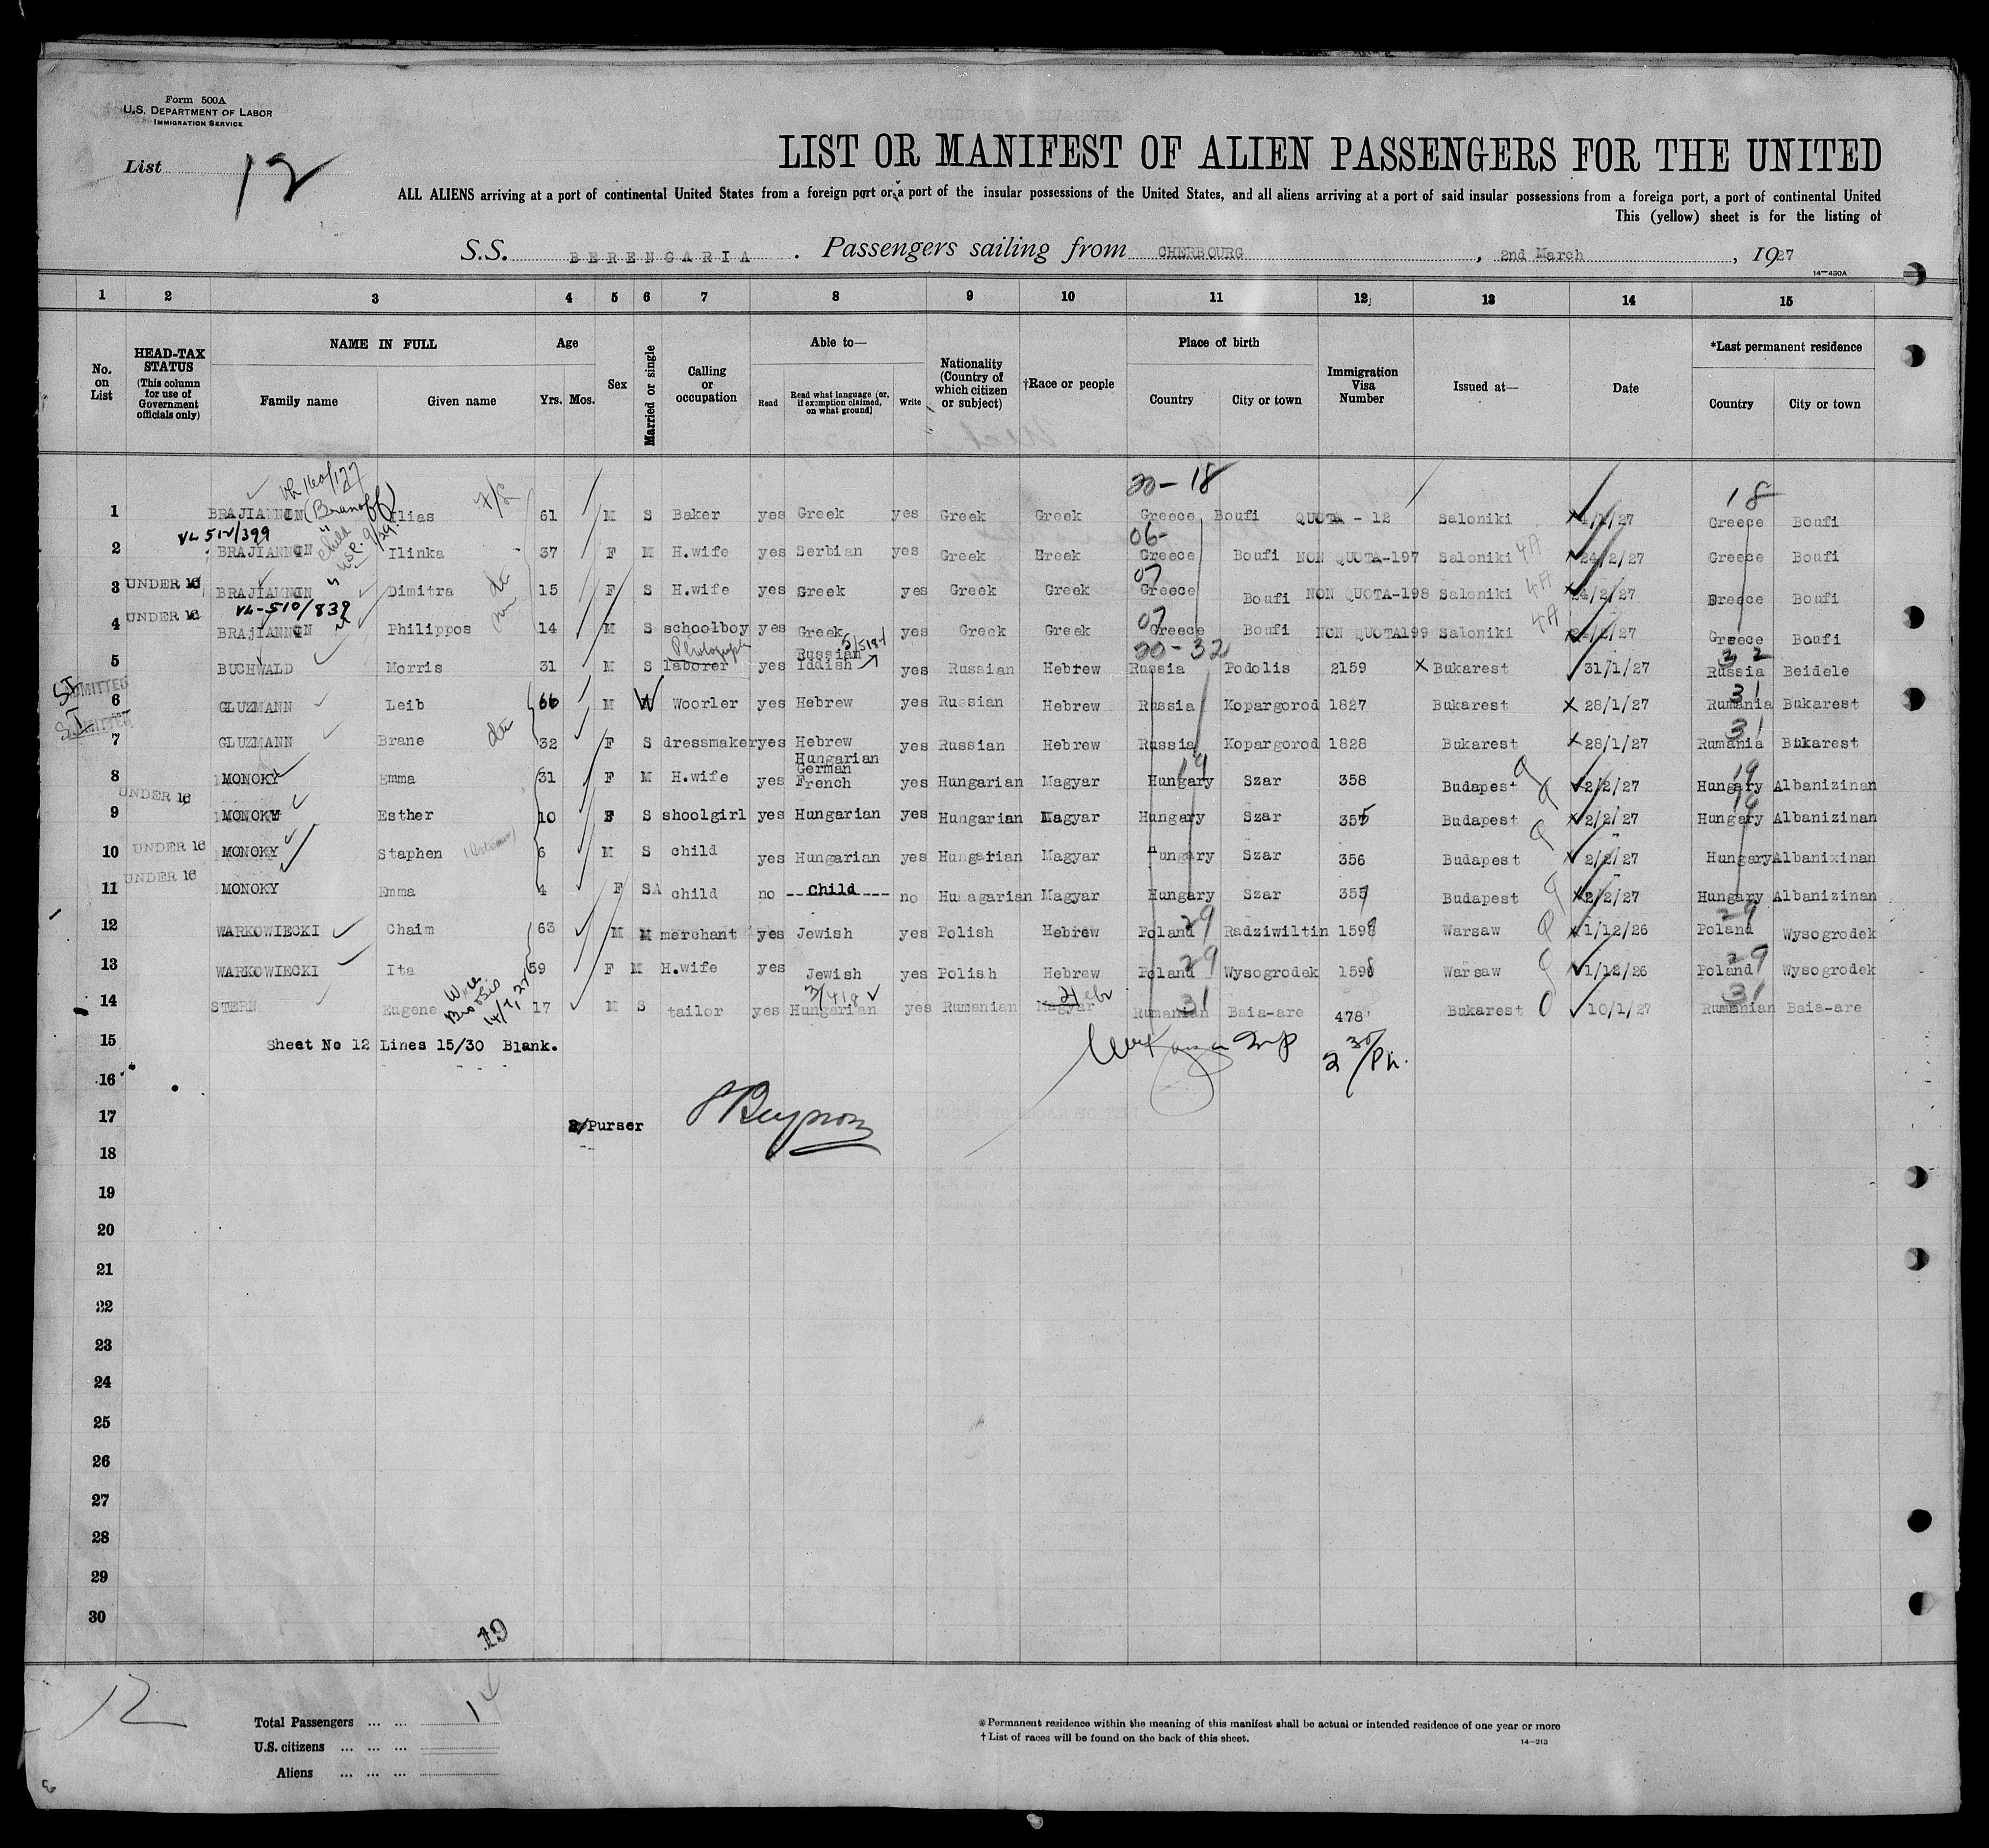 Form 500A
U.S. DEPARTMENT OF LABOR
IMMIGRATION SERVICE
List 12
LIST OR MANIFEST OF ALIEN PASSENGERS FOR THE UNITED
ALL ALIENS arriving at a port of continental United States from a foreign port or a port of the insular possessions of the United States, and all aliens arriving at a port of said insular possessions from a foreign port, a port of continental United
This (yellow) sheet is for the listing of
S.S. BERENGARIA . Passengers sailing from CHERBOURG , 2nd March , 1927
14—430A
1 2 3 4 5 6 7 8 9 10 11 12 13 14 15
No. on List
HEAD-TAX STATUS (This column for use of Government officials only)
NAME IN FULL
Family name
Given name
Age
Yrs. Mos.
Sex
Married or single
Calling or occupation
Able to—
Read
Read what language (or, if exemption claimed, on what ground)
Write
Nationality (Country of which citizen or subject)
†Race or people
Place of birth
Country
City or town
Immigration Visa Number
Issued at—
Date
*Last permanent residence
Country
City or town
20-18 18
1 BRAJIANNIN (Branoff) Ilias 61 M S Baker yes Greek yes Greek Greek Greece Boufi QUOTA - 12 Saloniki /27 Greece Boufi
VL 512/399 06-
2 BRAJIANNIN Ilinka 37 F M H.wife yes Serbian yes Greek Greek Greece Boufi NON QUOTA-197 Saloniki 4A 24/2/27 Greece Boufi
07
3 UNDER 16 BRAJIANNIN Dimitra 15 F S H.wife yes Greek yes Greek Greek Greece Boufi NON QUOTA-198 Saloniki 4A 24/2/27 Greece Boufi
VL-510/839 07
4 UNDER 16 BRAJIANNIN Philippos 14 M S schoolboy yes Greek yes Greek Greek Greece Boufi NON QUOTA199 Saloniki 4A 24/2/27 Greece Boufi
Photograph Russian 20-32 32
5 BUCHWALD Morris 31 M S laborer yes Iddish yes Russian Hebrew Russia Podolis 2159 Bukarest 31/1/27 Russia Beidele
SI ADMITTED 31
6 GLUZMANN Leib 66 M W Woorler yes Hebrew yes Russian Hebrew Russia Kopargorod 1827 Bukarest 28/1/27 Rumania Bukarest
SI ADMITTED 31
7 GLUZMANN Brane 32 F S dressmaker yes Hebrew yes Russian Hebrew Russia Kopargorod 1828 Bukarest 28/1/27 Rumania Bukarest
Hungarian
German 19 19
8 MONOKY Emma 31 F M H.wife yes French yes Hungarian Magyar Hungary Szar 358 Budapest 2/2/27 Hungary Albanizinan
UNDER 16 19
9 MONOKY Esther 10 F S shoolgirl yes Hungarian yes Hungarian Magyar Hungary Szar 355 Budapest 2/2/27 Hungary Albanizinan
10 UNDER 16 MONOKY Staphen 6 M S child yes Hungarian yes Hungarian Magyar Hungary Szar 356 Budapest 2/2/27 Hungary Albanixinan
11 UNDER 16 MONOKY Emma 4 F S child no Child no Hunagarian Magyar Hungary Szar 357 Budapest 2/2/27 Hungary Albanizinan
29 29
12 WARKOWIECKI Chaim 63 M M merchant yes Jewish yes Polish Hebrew Poland Radziwiltin 1598 Warsaw 1/12/26 Poland Wysogrodek
29 29
13 WARKOWIECKI Ita 59 F M H.wife yes Jewish yes Polish Hebrew Poland Wysogrodek 1598 Warsaw 1/12/26 Poland Wysogrodek
3/418 Hebr 31 31
14 STERN Eugene 17 M S tailor yes Hungarian yes Rumanian Magyar Rumanian Baia-are 478 Bukarest 10/1/27 Rumanian Baia-are
15 Sheet No 12 Lines 15/30 Blank.
16
17 Purser
18
19
20
21
22
23
24
25
26
27
28
29
30
19
12
Total Passengers ... ... 14
U.S. citizens ... ... ...
Aliens ... ... ...
*Permanent residence within the meaning of this manifest shall be actual or intended residence of one year or more
†List of races will be found on the back of this sheet.
14—213